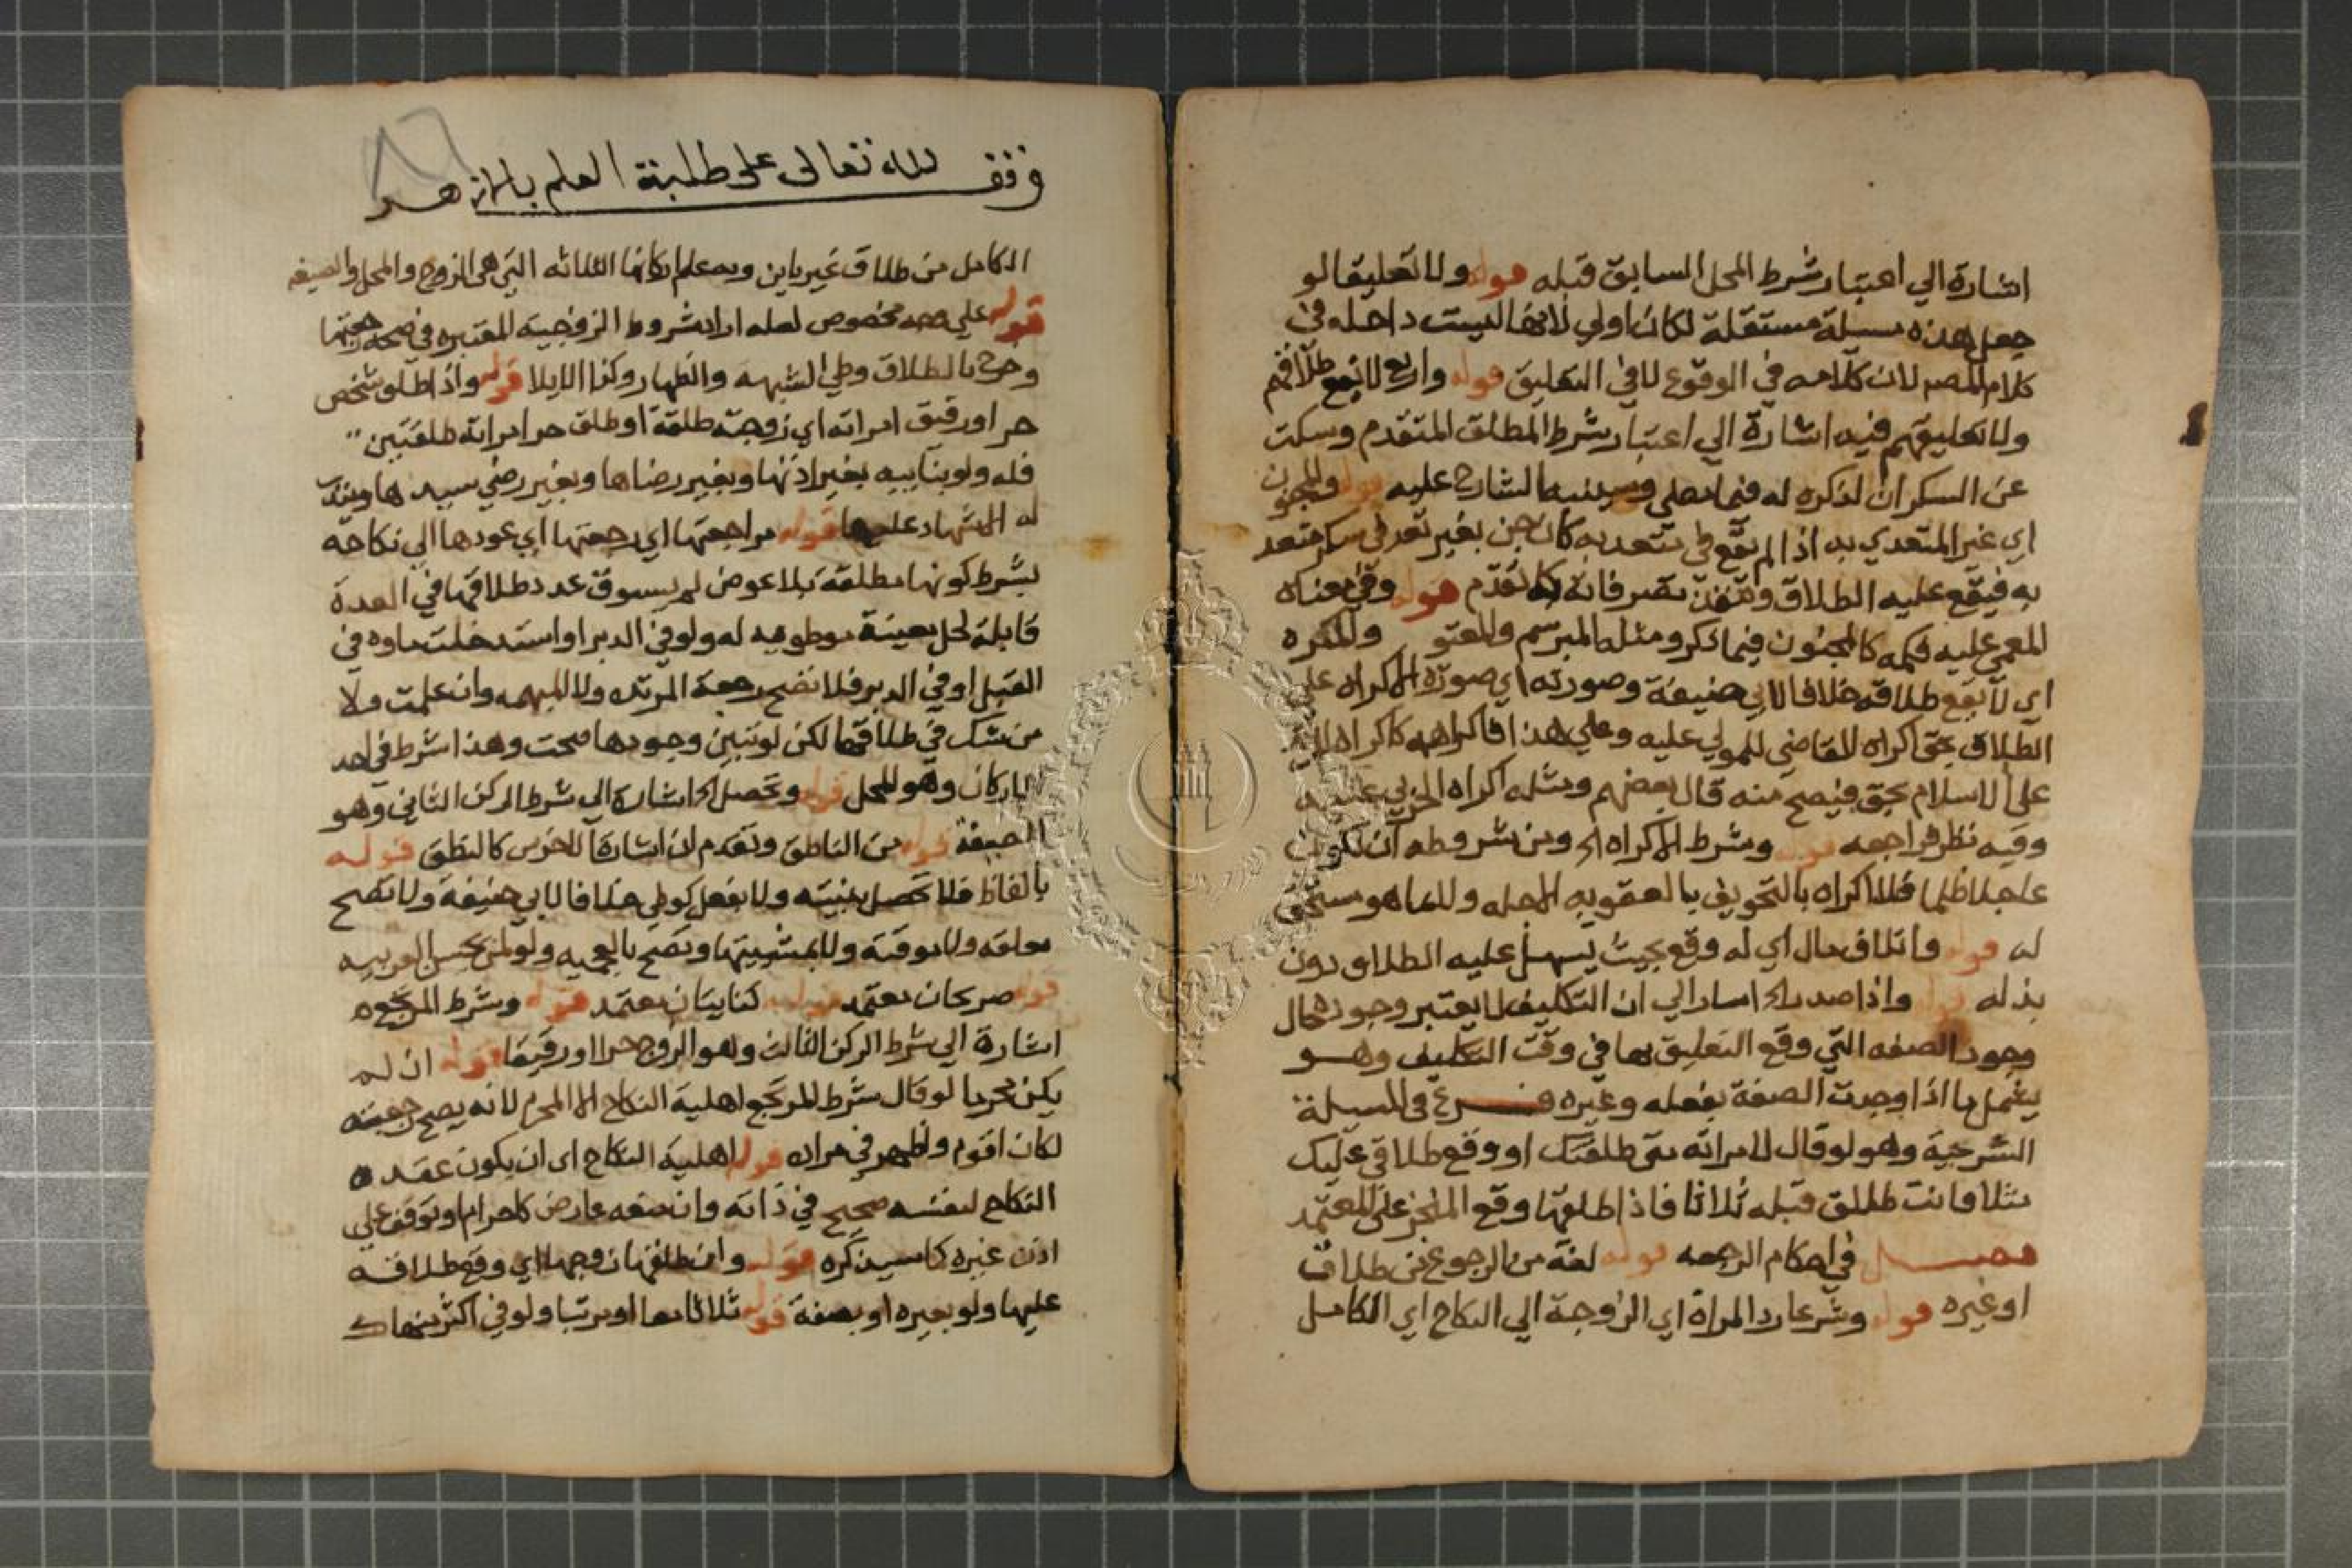 اشارة الي اعتبار شرط المحل السابق قبله قوله ولا تعليقا لو
جعل هذه مسيلة مستقلة لكان اولي لانها ليست داخله في
كلام المصم لان كلامه في الوقوع لا في التعليق قوله واربع لا يقع طلاقهم
ولا تعليقهم فيه اشارة الي اعتبار شرط المطلق المتقدم وسكت
عن السكران لذكره له فيما الشارح عليه قوله والمجنون
اي غير المتعدي به اذا لم يقع في تعد به كان جن بغير تعد في سكر متعد
به فيقع عليه الطلاق وتنفذ تصرفاته كما تقدم قوله وفي معناه
المغمي عليه فحكمه كالمجنون فيما ذكر ومثله المبرسم والمعتو والمكره
اي لا يقع طلاقه خلافا لابي حنيفة وصورته اي صورة الاكراه علي
الطلاق بحق اكراه القاضي للمولي عليه وعلي هذا فاكراهه كاكراه
علي الاسلام بحق فيصح منه قال بعضهم ومثله اكراه الحربي
وفيه نظر فراجعه قوله وشرط الاكراه اﻫ ومن شروطه ان تكون
عاجلا ظلما فلا اكراه بالتخويف بالعقوبه الاجله ولا بما هو مستحق
له قوله واتلاف مال اي له وقع بحيث يسهل عليه الطلاق دون
بذله قوله واذا صدر اﻫ اشار الي ان التكليف لا يعتبر وجوده حال
وجود الصفه التي وقع التعليق بها في وقت التكليف وهو
يشمل ما اذا وجدت الصفة بفعله وغيره فرع في المسيلة
السريجية وهو لو قال لامراته متي طلقتك او وقع طلاقي عليك
مثلا فانت طالق قبله ثلاثا فاذا طلقها وقع المنجز علي المعتمد
فصل في احكام الرجعه قوله لغة من الرجوع من طلاق
او غيره قوله وشرعا رد المراة اي الزوجة الي النكاح اي الكامل
وقف لله تعالى على طلبة العلم بالازهر
الكامل من طلاق غير باين وبه علم اركانها الثلاثه التي هي الزوج والمحل والصيغه
قوله علي وجه مخصوص لعله اراد شروط الزوجية المعتبره في صحة رجعتها
وخرج بالطلاق وطي الشبهه والظهار وكذا الايلا قوله واذا طلق شخص
حر او رقيق امراته اي زوجته طلقة او طلق حر امراته طلقتين
فله ولو بنايبه بغير اذنها وبغير رضاها وبغير رضي سيدها ويندب
له الاشهاد عليها قوله مراجعتها اي رجعتها اي عودها الي نكاحه
بشرط كونها مطلقة بلا عوض لم يستوف عدد طلاقها في العدة
قابلة لحل معينة موطوءه له ولو في الدبر او استدخلت ماوه في
القبل او في الدبر فلا تصح رجعة المرتده ولا المبهمه وان علمت ولا
من شك في طلاقها لكن لو تبين وجودها صحت وهذا شرط في احد
الاركان وهو المحل قوله وتحصل اﻫ اشارة الي شرط الركن الثاني وهو
الصيغة قوله من الناطق وتقدم ان اشارة الاخرس كالنطق قوله
بالفاظ فلا تحصل بنيته ولا بفعل كوطي خلافا لابي حنيفة ولا تصح
معلقه ولا موقتة ولا بمشيتها وتصح بالعجميه ولو لمن يحسن العربيه
قوله صريحان معتمد قوله كنايتان معتمد قوله وشرط المرتجع
اشارة الي شرط الركن الثالث وهو الزوج حرا او رقيقا قوله ان لم
يكن محرما لو قال شرط المرتجع اهلية النكاح الا المحرم لانه يصح رجعته
لكان اقوم واظهر في مراده قوله اهلية النكاح اي ان يكون عقده
النكاح لنفسه صحيح في ذاته وان منعه عارض كاحرام او توقف علي
اذن غيره كما سيذكره قوله وان طلقها زوجها اي وقع طلاقه
عليها ولو بغيره او بصفة قوله ثلاثا معا او مرتبا ولو في اكثر